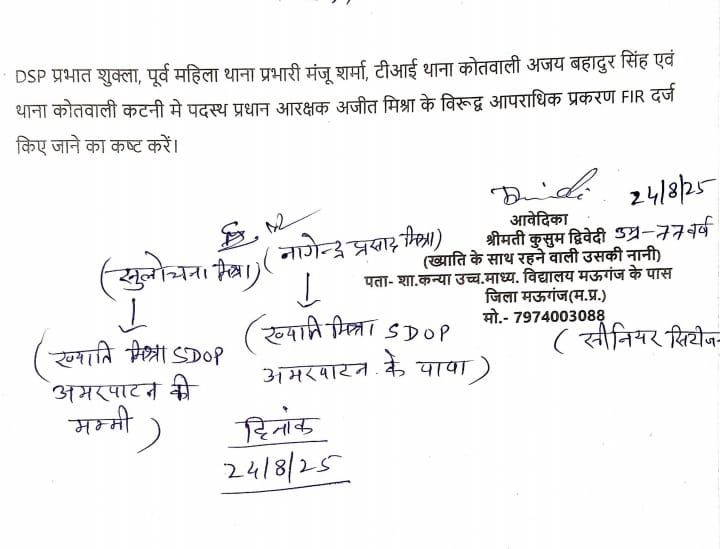 DSP प्रभात शुक्ला, पूर्व महिला थाना प्रभारी मंजू शर्मा, टीआई थाना कोतवाली अजय बहादुर सिंह एवं
थाना कोतवाली कटनी मे पदस्थ प्रधान आरक्षक अजीत मिश्रा के विरूद्ध आपराधिक प्रकरण FIR दर्ज
किए जाने का कष्ट करें।
24/8/25
आवेदिका
श्रीमती कुसुम द्विवेदी उम्र-77 वर्ष
(ख्याति के साथ रहने वाली उसकी नानी)
पता- शा.कन्या उच्च.माध्य. विद्यालय मऊगंज के पास
जिला मऊगंज(म.प्र.)
मो.- 7974003088
(सीनियर सिटीजन
(सुलोचना मिश्रा)
(नागेन्द्र प्रसाद मिश्रा)
(ख्याति मिश्रा SDOP
अमरपाटन की
मम्मी)
(ख्याति मिश्रा SDOP
अमरपाटन के पापा)
दिनांक
24/8/25